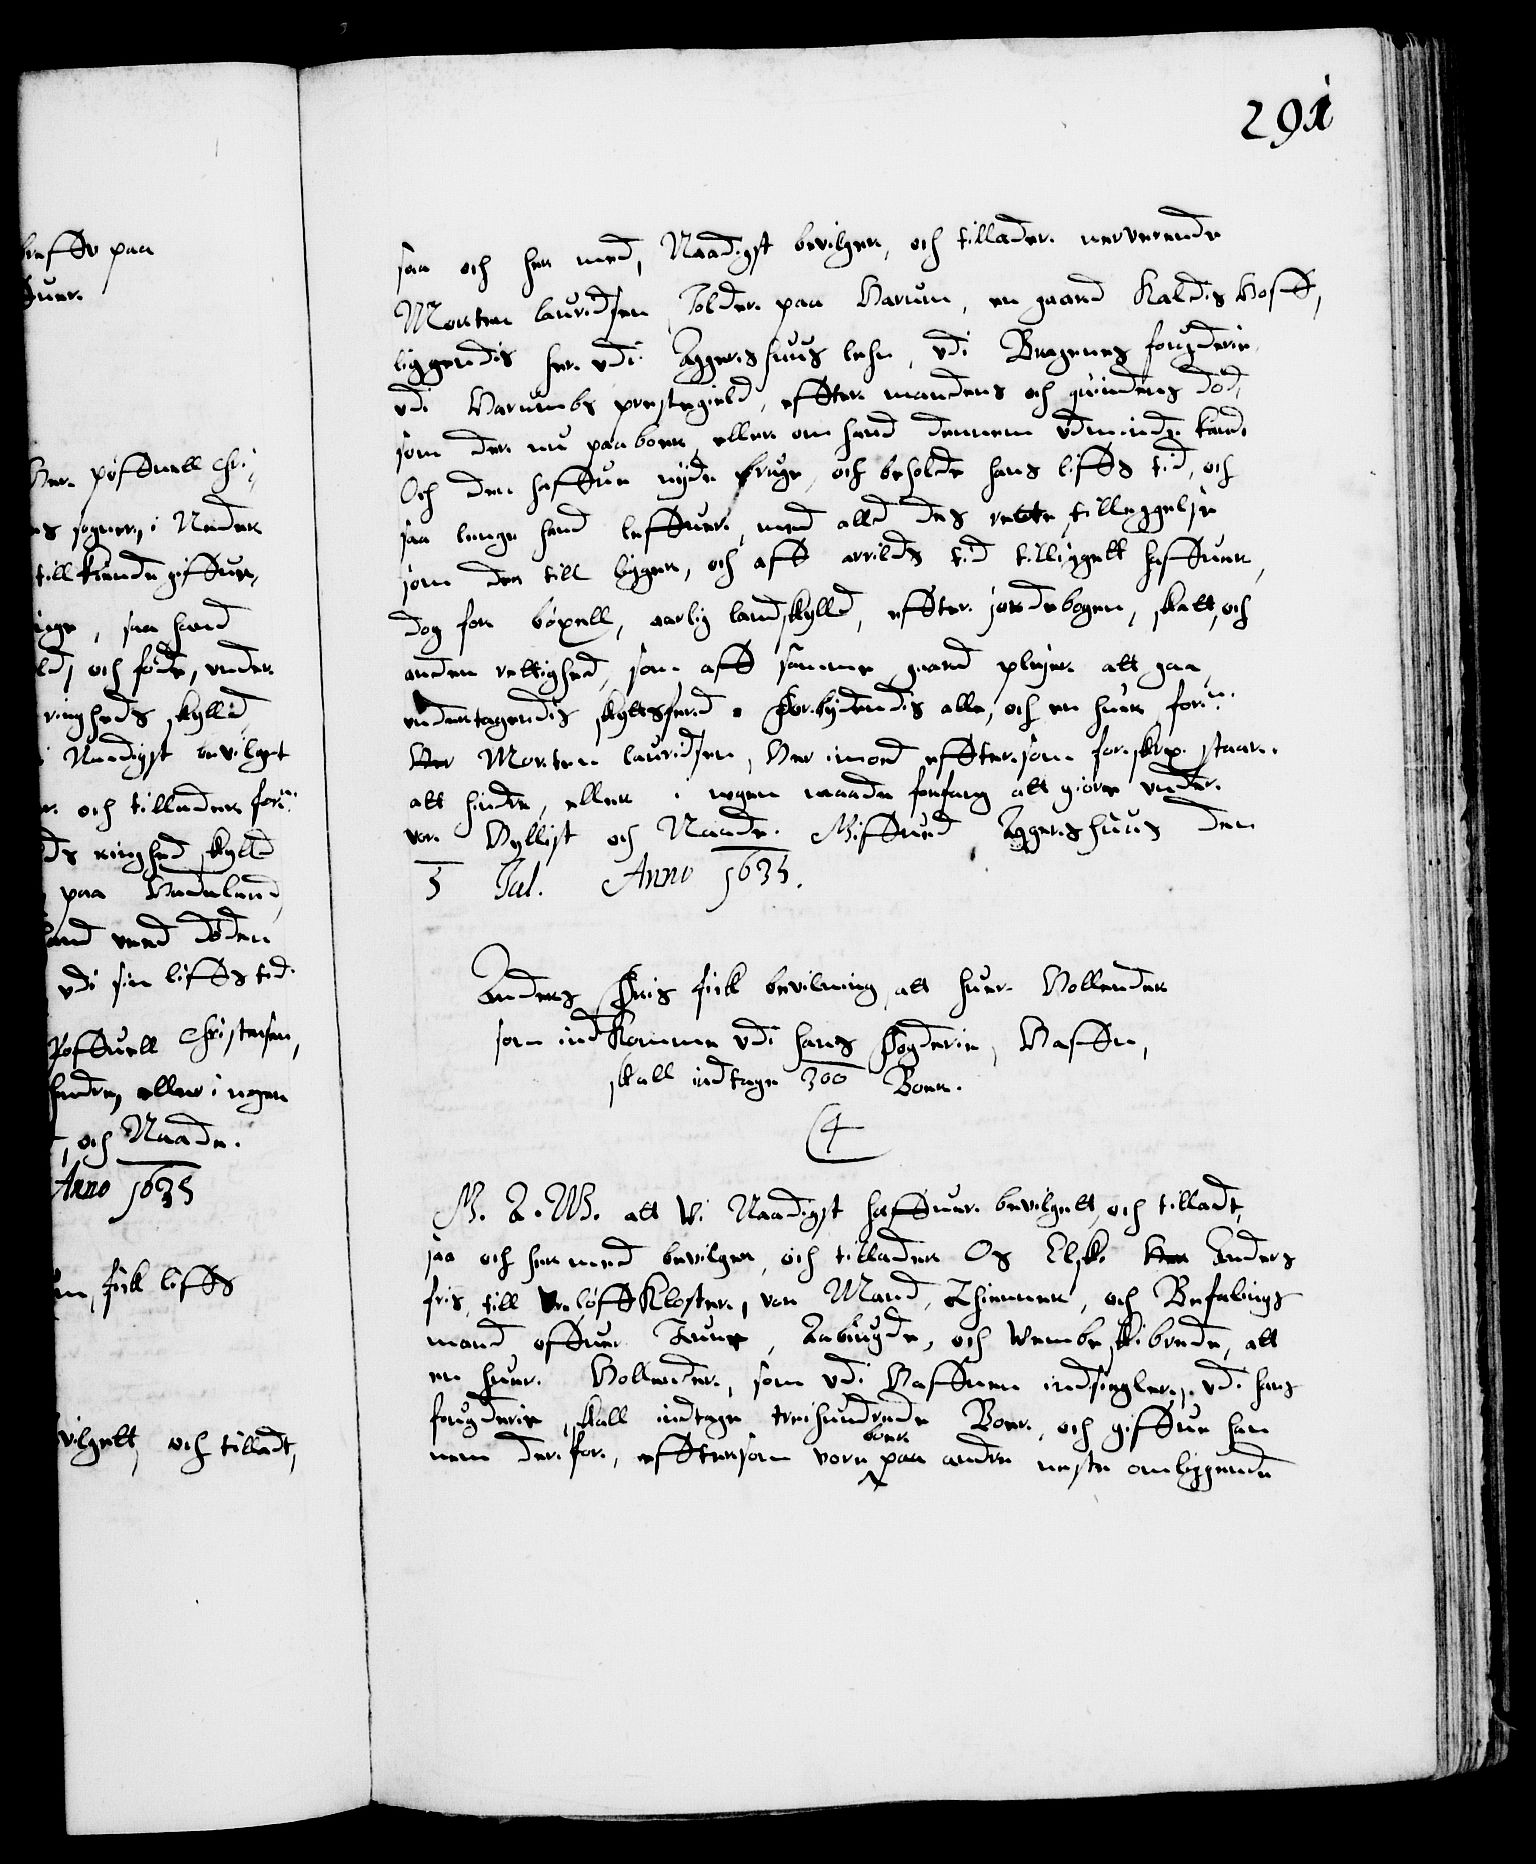 291
breffue paa
Her. Poffuell Chri¬
sogner, i Neder
till kiende giffuer,
, saa hand
och føde, under
ringheds skylld,
Naadigst bevilget
och tillader for:ne
ringhed skylld
paa Hadeland,
hand veed døden
udi sin liffs tid.
Poffuell Christensen,
hindre, eller i nogen
, och Naade.
Anno 1635
fick liffs
bevilgett, och tilladt,
saa och her med, Naadigst bevilger, och tillader. nerverende
Morten lauridsen, Tolder. paa Hurum, en gaard Kaldis Hoff,
liggendis her. udi Aggershuus lehn, udi Bragenes fougderie
udi Hurumbs prestegield, effter. mandens och quindens død,
som der. nu paaboer, eller om hand dennem udminde kand.
Och den haffue nyde bruge, och beholde hans liffs tid, och
saa lenge hand leffuer, med alld des rette tilleggelse
som der till ligger, och aff arrilds tid tilliggett haffuer,
dog for bøxell, aarlig landskylld, effter. jordebogen, skatt, och
anden rettighed, som aff samme gaard plejer. att gaa,
undertagendis skydtsferd. Forbydendis alle, och en huer for:ne
Her Morten lauridsen, Her imod, effter som for.skr. staar.
att hindre, eller i nogen maade forfang att giøre under.
vor. Hyllist och Naade. Giffued Aggershuus den
5 Jul. Anno 1635.
Anders Friis fick bevilning att huer. Hollender
som indkomme udi hans Fogderie, Haffn,
skall indtage 300 Boer.
G. A. W. att Wi Naadigst haffuer. bevilgett, och tilladt,
saa och her med bevilger, och tillader Os Elsk. Her Anders
friis, till Kloster, vor Mand, Thienner, och Befalings
mand offuer. , Aabuygde, och Wembe skibrede, att
en huer. Hollender, som udi Haffnen indsegler, udi hans
fougderie, skall indtage treihundrede Boer., och giffue han
boer
nem der.for, efftersom vore paa andre neste omliggende